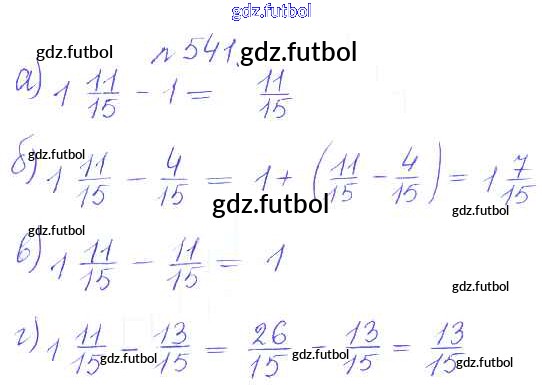 gdz.futbol
№ 541. gdz.futbol
gdz.futbol
а) 1 11/15 - 1 = 11/15
gdz.futbol
gdz.futbol
б) 1 11/15 - 4/15 = 1 + (11/15 - 4/15) = 1 7/15
gdz.futbol
gdz.futbol
gdz.futbol
в) 1 11/15 - 11/15 = 1
gdz.futbol
г) 1 11/15 - 13/15 = 26/15 - 13/15 = 13/15
gdz.futbol gdz.futbol gdz.futbol